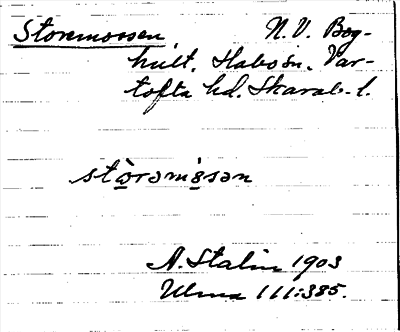 Storemossen N.V. Bog-
hult. Habo sn. Var-
tofta hd. Skarab. l.
stòrǝmɵ̀sǝn
A. Stalin 1903
Ulma 111:385.